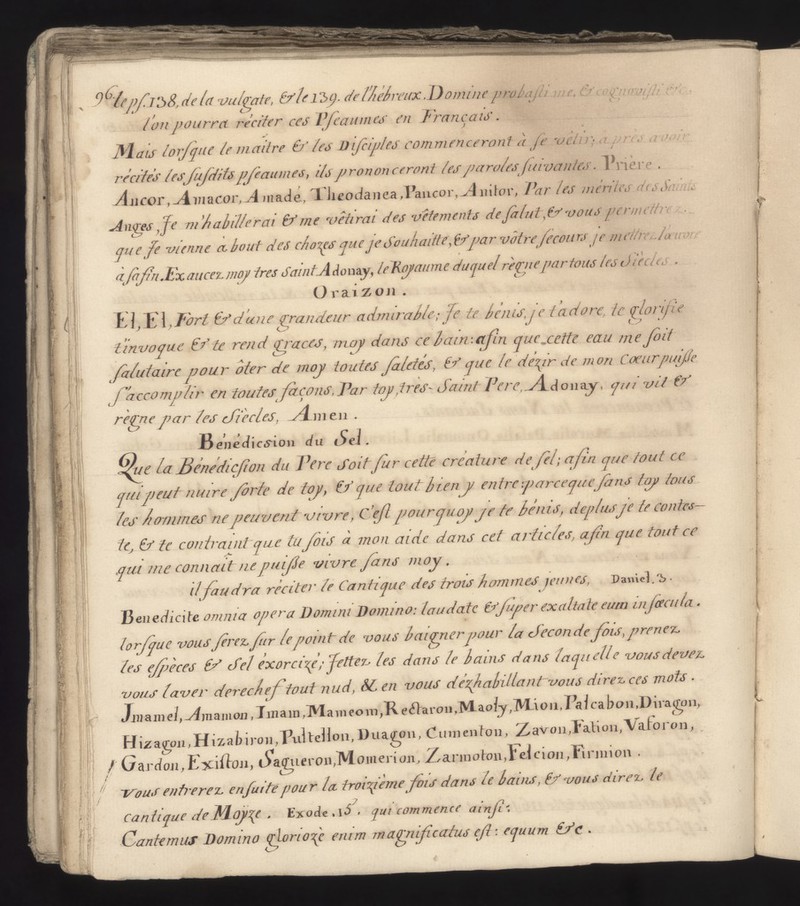 96 le ps. 138, de la vulgate, & le 139. de l'hébreux. Domine probasti me, & cognovisti &c.
l'on pourra réciter ces Pseaumes en Français.
Mais lorsque le maître & les Disciples commenceront à se vêtir; après avoir
récités les susdits pseaumes, ils prononceront les paroles suivantes. Prière.
Ancor, Amacor, Amadé, Theodanea, Pancor, Anitor, Par les mérites des Saints
Anges, Je m'habillerai & me vêtirai des vêtements de salut, & vous permettrez
que Je vienne à bout des chozes que je Souhaitte, & par vôtre secours je mettrez l'œuvre
à sa fin. Exaucez moy tres Saint Adonay, le Royaume duquel règne par tous les Siècles.
Oraizon.
El, El, Fort & d'une grandeur admirable; Je te bénis, je t'adore, te glorifie
t'invoque & te rend graces, moy dans ce bain: afin que cette eau me soit
salutaire pour ôter de moy toutes saletés, & que le dézir de mon Cœur puisse
s'accomplir en toutes façons, Par toy, très-Saint Pere, Adonay, qui vit &
règne par les Siècles, Amen.
Bénédicsion du Sel.
Que la Bénédicsion du Père soit sur cette créature de sel; afin que tout ce
qui peut nuire sorte de toy, & que tout bien y entre: parceque sans toy tous
les hommes ne peuvent vivre, C'est pourquoy je te bénis, deplus je te contes-
te, & te contraint que tu sois à mon aide dans cet articles, afin que tout ce
qui me connait ne puisse vivre sans moy.
il faudra réciter le Cantique des trois hommes jeunes, Daniel. 3.
Benedicite omnia opera Domini Domino: laudate & super exaltate eum in sæcula.
lorsque vous serez sur le point de vous baigner pour la Seconde fois, prenez
les espèces & Sel éxorcizé; Jettez les dans le bains dans laquelle vous devez
vous laver derechef tout nud, & en vous dézhabillant vous direz ces mots.
Jmamel, Amamon, Imam, Mameom, Rectaron, Maoty, Mion, Patcabon, Diragon,
Hizagon, Hizabiron, Pultellon, Duagon, Cumenton, Zavon, Fation, Vaforon,
Gardon, Existon, Sagueron, Momerion, Zarmoton, Felcion, Firmion.
vous entrerez ensuite pour la troizième fois dans le bains, & vous direz le
cantique de Moÿze. Exode. 15. qui commence ainsi:
Cantemus Domino gloriozè enim magnificatus est: equum &c.